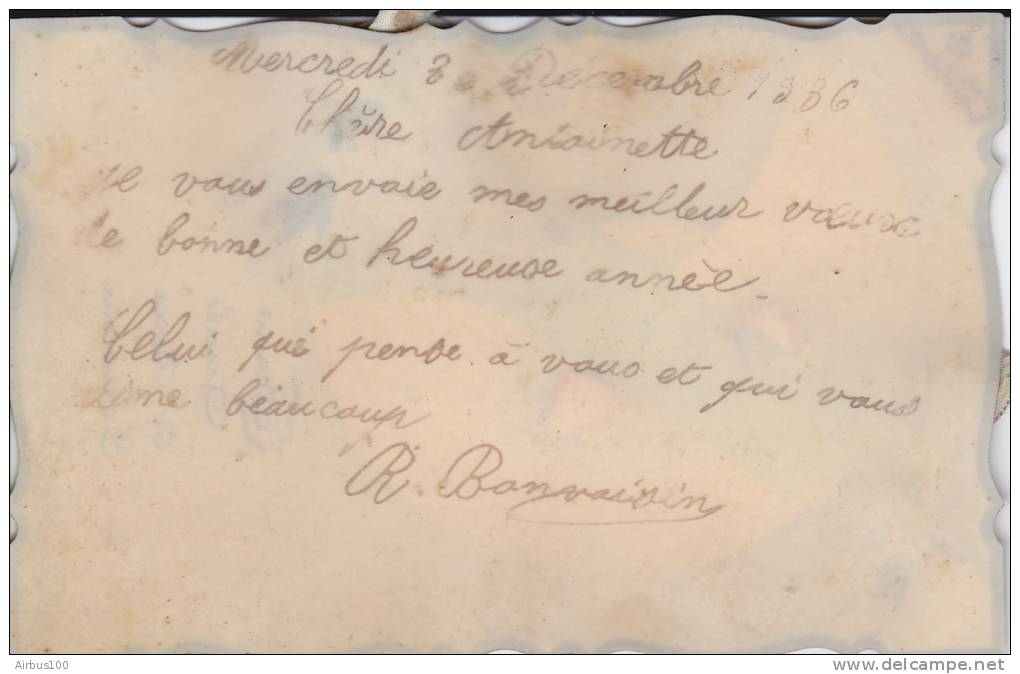 Mercredi 30 Décembre 1936
Chère Antoinette
Je vous envoie mes meilleur vœux
de bonne et heureuse année.
Celui qui pense à vous et qui vous
aime beaucoup
R. Bonvoisin
Airbus100
www.delcampe.net